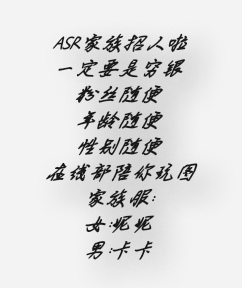 ASR家族招人啦
一定要是穷银
粉丝随便
年龄随便
性别随便
在线都陪你玩图
家族服:
女:妮妮
男:卡卡